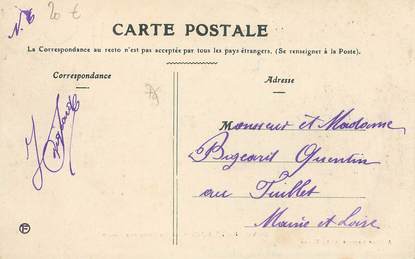 N. 6
20 €
CARTE POSTALE
La Correspondance au recto n'est pas acceptée par tous les pays étrangers. (Se renseigner à la Poste).
Correspondance
Adresse
Monsieur et Madame
Quentin
au Fuillet
Maine et Loire